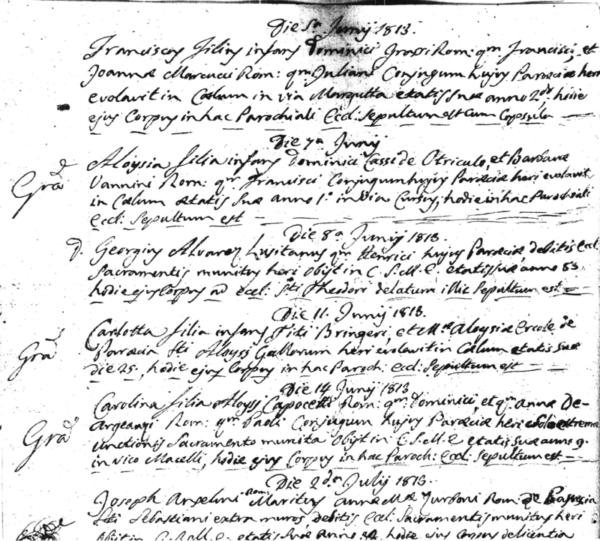 Die 5a Junij 1813.
Franciscus filius infans Dominici Grossi Rom: qm Francisci, et
Joannæ Marcucci Rom: qm Juliani Conjugum hujus Parœciæ heri
evolavit in Cœlum in via Margutta etatis suæ anno 2do hodie
ejus Corpus in hac Parochiali Eccl: Sepultum est cum Capsula
Die 7a Junij
Aloysia filia infans Dominici Casse de Otriculo, et Barbaræ
Vannini Rom: qm Francisci Conjugum hujus Parœciæ heri evolavit
in Cœlum ætatis suæ anno 1o in Via Cursus; hodie in hac Parochiali
Eccl: Sepultum est
Die 8a Junij 1813.
D. Georgius Alvarez Lusitanus qm Henrici hujus Parœciæ, debitis Eccl:
Sacramentis munitus heri obijt in C. S. M. E. etatis suæ anno 83
hodie ejus Corpus ad Eccl: Sti Theodori delatum illic Sepultum est
Die 11. Junij 1813.
Carlotta filia infans Titi Bringeri, et Mæ Aloysiæ Ercole de
Parœcia Sti Aloysij Gallorum heri evolavit in Cœlum etatis suæ
die 25. hodie ejus Corpus in hac Paroch: Eccl: Sepultum est
Die 14 Junij 1813
Carolina filia Aloysij Capocetti Rom: qm Dominici, et qm Annæ De-
Argeangi Rom: qm Pauli Conjugum hujus Parœciæ heri solo extremæ
unctionis Sacramento munita obijt in C. S. M. E etatis suæ anno 9.
in vico Macelli, hodie ejus Corpus in hac Paroch: Eccl: Sepultum est
Die 2da Julij 1813.
Joseph Anselmi Rom: Maritus Annæ Mæ Turboni Rom: de
Sti Sebastiani extra muros debitis Eccl: Sacramentis munitus heri
obijt in etatis suæ anno hodie ejus
Gra
Gra
Gra